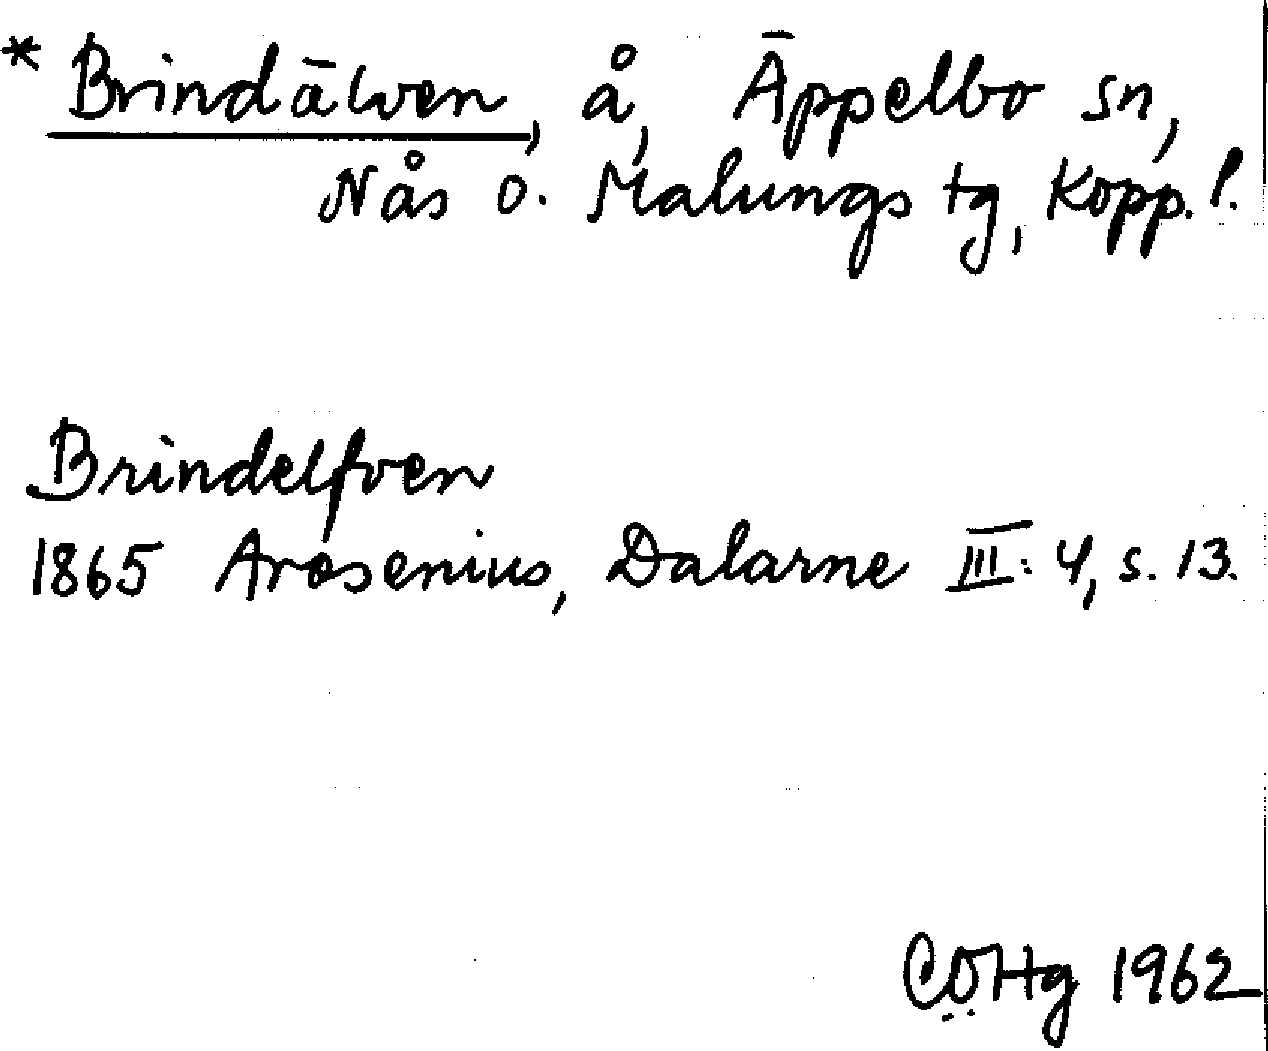 * Brindälven, å, Äppelbo sn,
Nås o. Malungs tg, Kopp. l.
Brindelfven
1865 Arosenius, Dalarne III: 4, s. 13.
CÖHg 1962